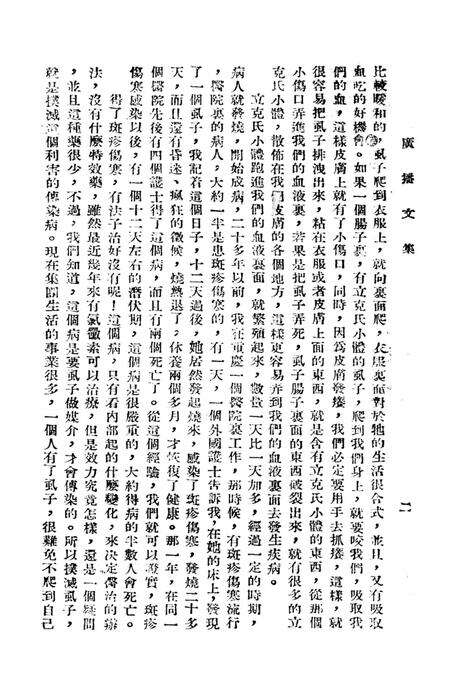 廣播文集
二
比較暖和的,虱子爬到衣服上,就向裏面爬,衣服裏面對於牠的生活很合式,並且,又有吸取
血吃的好機會。如果一個腸子裏,有立克氏小體的虱子,爬到我們身上,就要咬我們,吸取我
們的血,這樣皮膚上就有了小傷口,同時,因爲皮膚發癢,我們必定要用手去抓癢,這樣,就
很容易把虱子排洩出來,粘在衣服或者皮膚上面的東西,就是含有立克氏小體的東西,從那個
小傷口弄進我們的血液裏,若果是把虱子弄死,虱子腸子裏面的東西破裂出來,就有很多的立
克氏小體,散佈在我們皮膚的各個地方,這樣更容易弄到我們的血液裏面去發生疾病。
立克氏小體跑進我們的血液裏面,就繁殖起來,數量一天比一天加多,經過一定的時期,
病人就發燒,開始成病,二十多年以前,我在重慶一個醫院裏工作,那時候,有斑疹傷寒流行
,醫院裏的病人,大約一半是患斑疹傷寒的,有一天,一個外國護士告訴我,在她的床上,發現
了一個虱子,我記着這個日子,十二天過後,她居然發起燒來,感染了斑疹傷寒,發燒二十多
天,而且還有昏迷、瘋狂的徵候,燒熱退了,休養兩個多月,才恢復了健康。那一年,在同一
個醫院先後有四個護士得了這個病,而且有兩個死亡了。從這個經驗,我們就可以證實,斑疹
傷寒感染以後,有一個十二天左右的潛伏期,這個病是很嚴重的,大約得病的半數人會死亡。
得了斑疹傷寒,有法子治好沒有呢!這個病,只有看內部起的什麼變化,來決定醫治的辦
法,沒有什麼特效藥,雖然最近幾年來有氯黴素可以治療,但是效力究竟怎樣,還是一個疑問
,並且這種藥很少,不過,我們知道,這個病是要虱子做媒介,才會傳染的。所以撲滅虱子,
就是撲滅這個利害的傳染病。現在集團生活的事業很多,一個人有了虱子,很難免不爬到自己